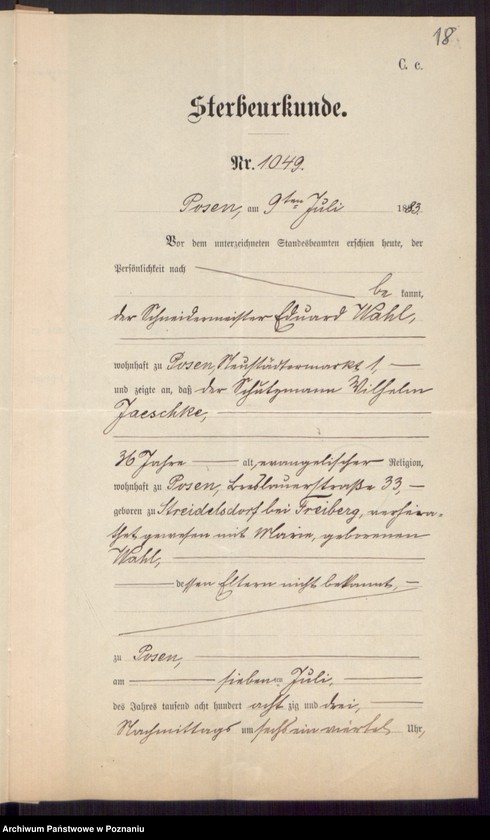 18
C. c.
Sterbeurkunde.
Nr. 1049.
Posen, am 9ten Juli 1883.
Vor dem unterzeichneten Standesbeamten erschien heute, der
Persönlichkeit nach
be kannt,
der Schneidermeister Eduard Wahl,
wohnhaft zu Posen, Neustädtermarkt 1,
und zeigte an, daß der Schutzmann Wilhelm
Jaeschke,
36 Jahre alt, evangelischer Religion,
wohnhaft zu Posen, Breslauerstraße 33,
geboren zu Streidelsdorf bei Freiberg, verheira-
thet gewesen mit Marie, geborenen
Wahl,
dessen Eltern nicht bekannt,
zu Posen,
am sieben ten Juli,
des Jahres tausend acht hundert acht zig und drei,
Nachmittags um sechs ein viertel Uhr,
Archiwum Państwowe w Poznaniu